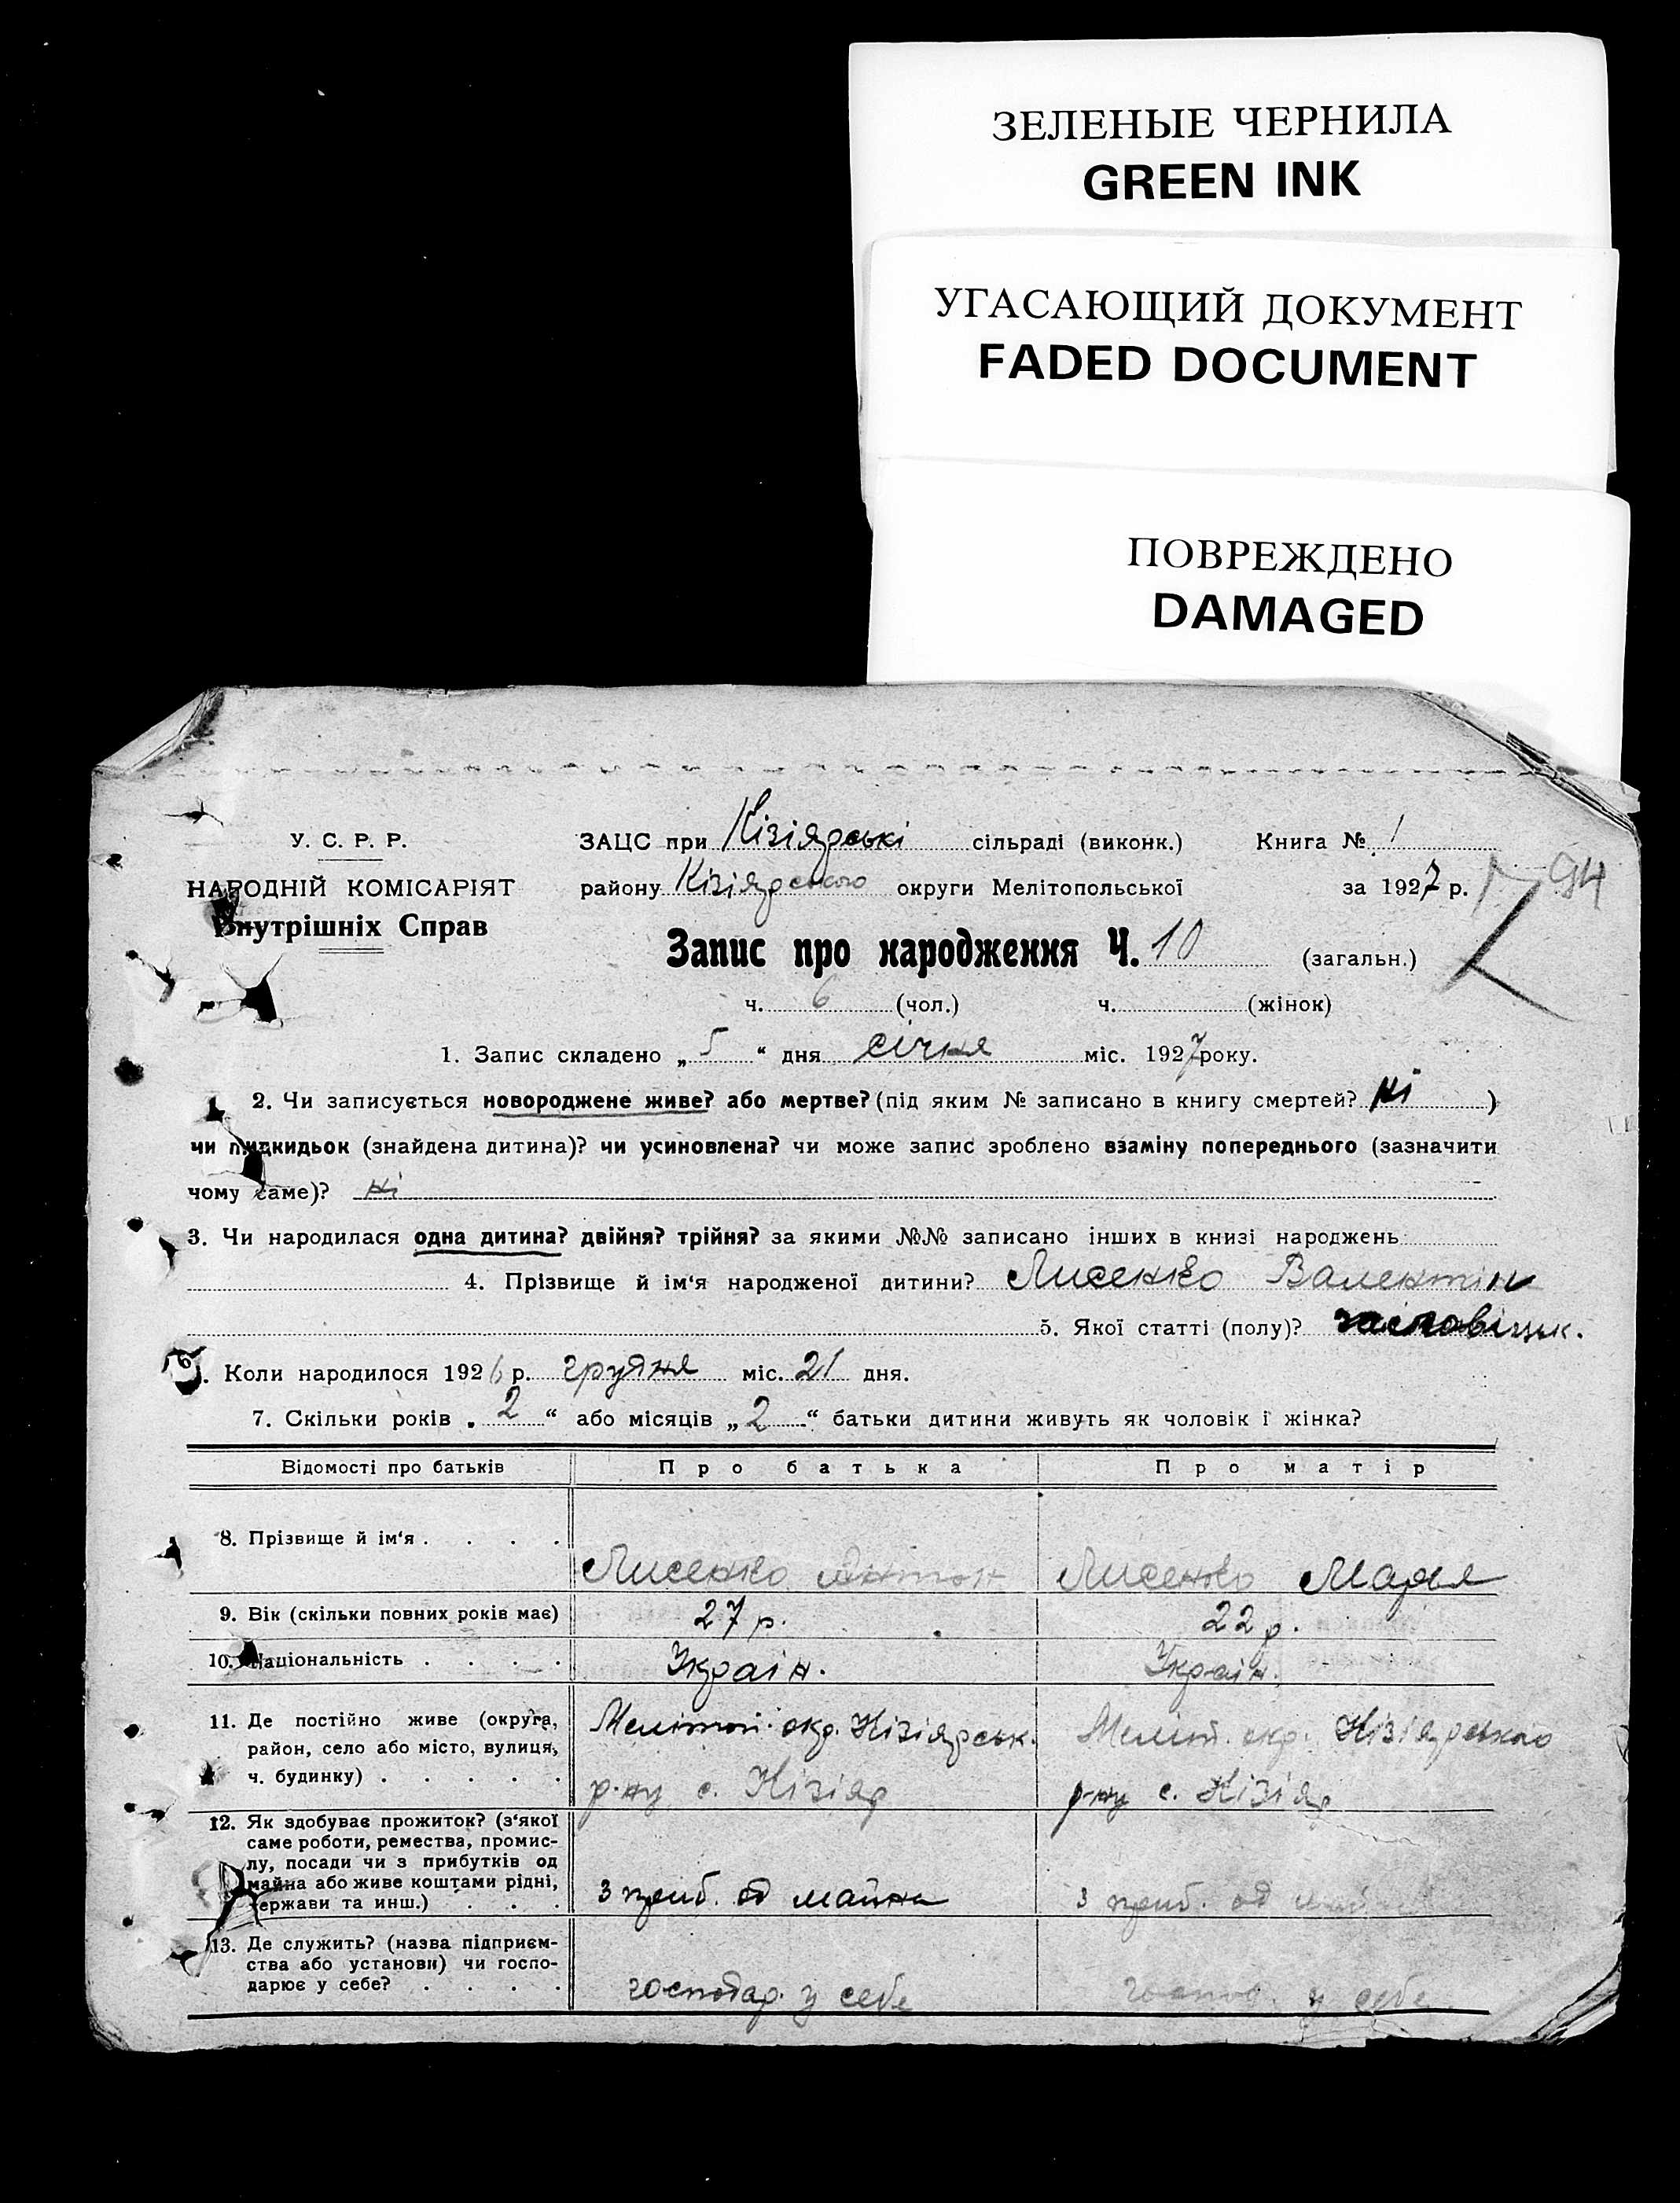 ЗЕЛЕНЫЕ ЧЕРНИЛА
GREEN INK
УГАСАЮЩИЙ ДОКУМЕНТ
FADED DOCUMENT
ПОВРЕЖДЕНО
DAMAGED
У. С. Р. Р.
НАРОДНІЙ КОМІСАРІЯТ
Внутрішніх Справ
ЗАЦС при Кізіярські сільраді (виконк.) Книга № 1
району Кізіярського округи Мелітопольської за 1927 р. 94
Запис про народження Ч. 10 (загальн.)
ч. 6 (чол.) ч. (жінок)
1. Запис складено „ 5 “ дня січня міс. 1927 року.
2. Чи записується новороджене живе? або мертве? (під яким № записано в книгу смертей? ні )
чи підкидьок (знайдена дитина)? чи усиновлена? чи може запис зроблено взаміну попереднього (зазначити
чому саме)? ні
3. Чи народилася одна дитина? двійня? трійня? за якими №№ записано інших в книзі народжень
4. Прізвище й ім‘я народженої дитини? Лисенко Валентін
5. Якої статті (полу)?
6. Коли народилося 1926 р. грудня міс. 21 дня.
7. Скільки років „ 2 “ або місяців „ 2 “ батьки дитини живуть як чоловік і жінка?
Відомості про батьків Про батька Про матір
8. Прізвище й ім‘я . . . . Лисенко Антон Лисенко Марья
9. Вік (скільки повних років має) 27 р. 22 р.
10. Національність . . . . Україн. Україн.
11. Де постійно живе (округа,
район, село або місто, вулиця,
ч. будинку) . . . . .
Мелітоп. окр. Кізіярськ.
р-ну с. Кізіяр
Меліт. окр. Кізіярського
р-ну с. Кізіяр
12. Як здобуває прожиток? (з‘якої
саме роботи, ремества, промис-
лу, посади чи з прибутків од
майна або живе коштами рідні,
держави та инш.) . . .
з приб. од майна
з приб. од
13. Де служить? (назва підприєм-
ства або установи) чи госпо-
дарює у себе? . . . .
господар. у себе
господ. у себе